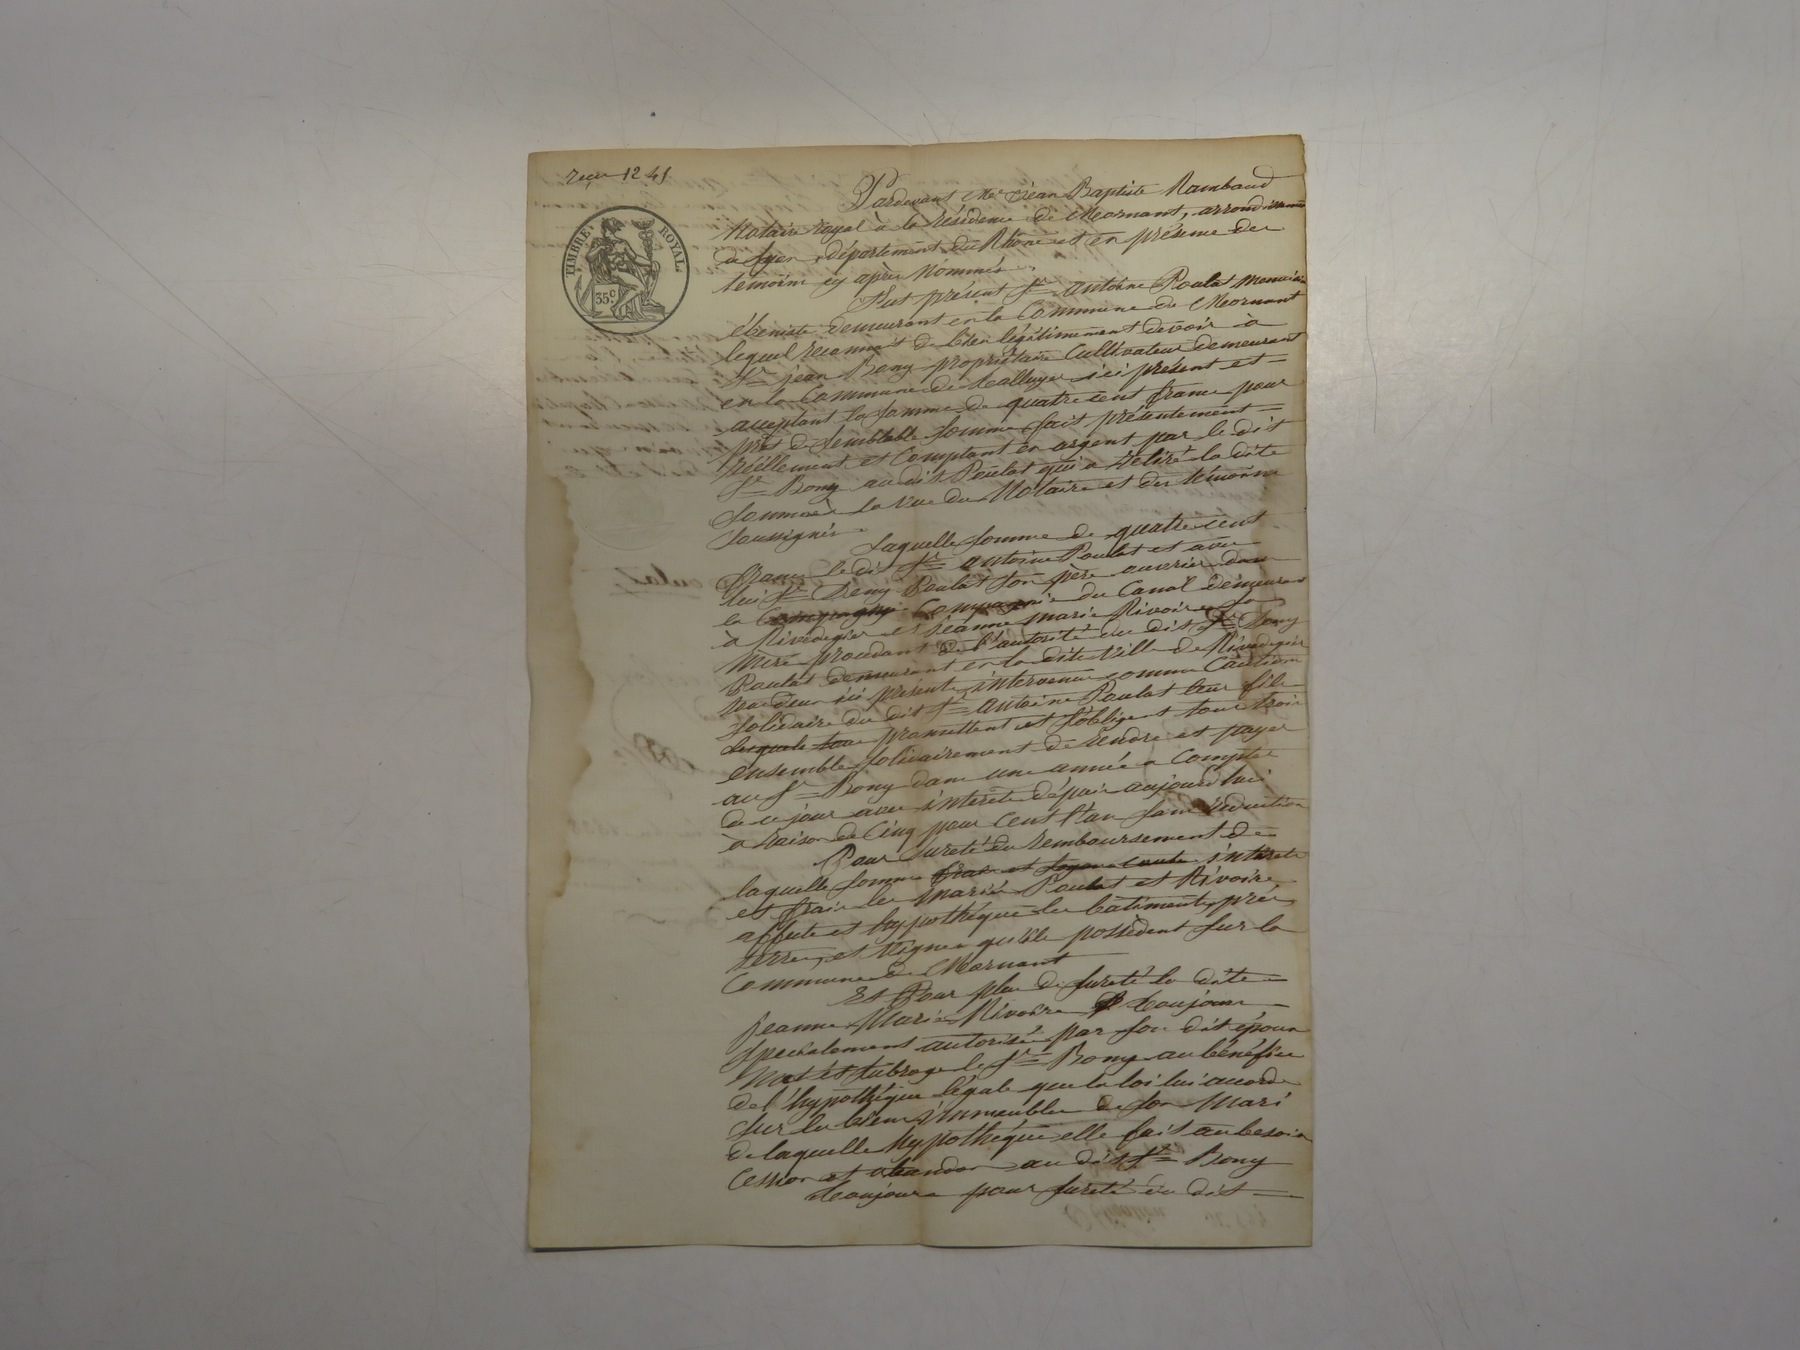 reçu 12 45
TIMBRE ROYAL
35 c
Pardevant Me Jean Baptiste Rambaud
Notaire royal à la résidence de Mornant, arrondissement
de Lyon, département du Rhône et en présence des
témoins cy après nommés.
Fut présent Sr Antoine Poulat menuisier
ébeniste demeurant en la Commune de Mornant
lequel reconnait de bien légitimement devoir à
Sr jean Bony propriétaire Cultivateur demeurant
en la Commune de ici présent et
acceptant la somme de quatre cent francs pour
prêt de semblable somme fait présentement
réellement et comptant en argent par le dit
Sr Bony au dit Poulat qui a retiré la dite
somme à la vue du Notaire et des témoins
soussignés
Laquelle somme de quatre cent
francs le dit Sr Antoine Poulat et avec
lui Sr Poulat son père ouvrier dans
la Compagnie du Canal demeurant
à Rivedegier et jeanne marie Rivoire sa
mère procédant de l'autorité du dit Sr
Poulat demeurant en la dite Ville de Rivedegier
tous deux ici présents intervenus comme Caution
solidaire du dit Sr Antoine Poulat leur fils
lesquels tous promettent et s'obligent tous trois
ensemble solidairement de rendre et payer
au Sr Bony dans une année à Compter
de ce jour avec intérêts depuis aujourd'hui
à raison de Cinq pour cent l'an sans réduction
Pour sureté du remboursement de
laquelle somme intérêts
et frais les mariés Poulat et Rivoire
affecte et hypothéque les batiments, prés,
terres, et Vignes qu'ils possèdent sur la
Commune de Mornant
Et Pour plus de sureté la dite
jeanne Marie Rivoire toujours
spécialement autorisé par son dit époux
met et subroge le Sr Bony au bénéfice
de l'hypothéque légale que la loi lui accorde
sur les biens immeubles de son Mari
de laquelle hypothéque elle fait au besoin
Cession et abandon au dit Sr Bony
toujours pour sureté du dit